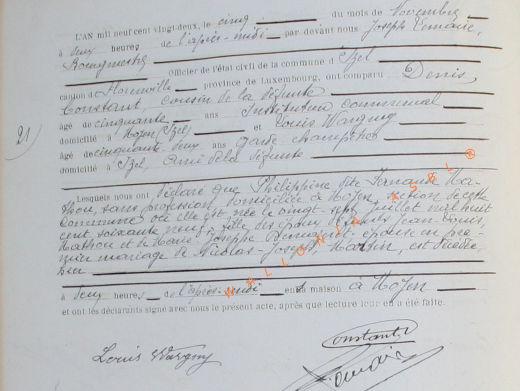 L'AN mil neuf cent vingt-deux, le cinq du mois de Novembre
à deux heures de l'après-midi par-devant nous Joseph Lemaire,
Bourgmestre
Officier de l'état civil de la commune d'Izel
canton de Florenville, province de Luxembourg, ont comparu Denis
Constant, cousin de la défunte
âgé de cinquante ans Instituteur communal
domicilié à Moyen (Izel) et Louis Wargny
âgé de cinquante-deux ans Garde champêtre
domicilié à Izel, ami de la défunte
21
Lesquels nous ont déclaré que Philippine dite Fernande Ma-
thon, sans profession, domiciliée à Moyen, section de cette
commune, où elle est née le vingt-sept juillet mil huit
cent soixante neuf, fille des époux Jean-Louis
Mathon et de Marie-Joseph épouse en pre-
mier mariage de Nicolas-Joseph, est décédée
hier
à deux heures de l'après-midi en sa maison à Moyen
et ont les déclarants signé avec nous le présent acte, après que lecture leur en a été faite.
WALLONIA ASBL ®
Constant
Louis Wargny
Lemaire